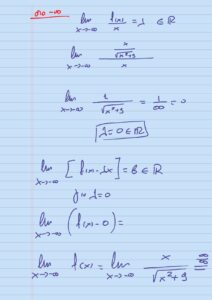 στο -∞
lim x→-∞ f(x)/x = λ ∈ ℝ
lim x→-∞ (x/√(x²+9))/x
lim x→-∞ 1/√(x²+9) = 1/∞ = 0
λ = 0 ∈ ℝ
lim x→-∞ [f(x) - λx] = β ∈ ℝ
για λ=0
lim x→-∞ (f(x) - 0) =
lim x→-∞ f(x) = lim x→-∞ x/√(x²+9)